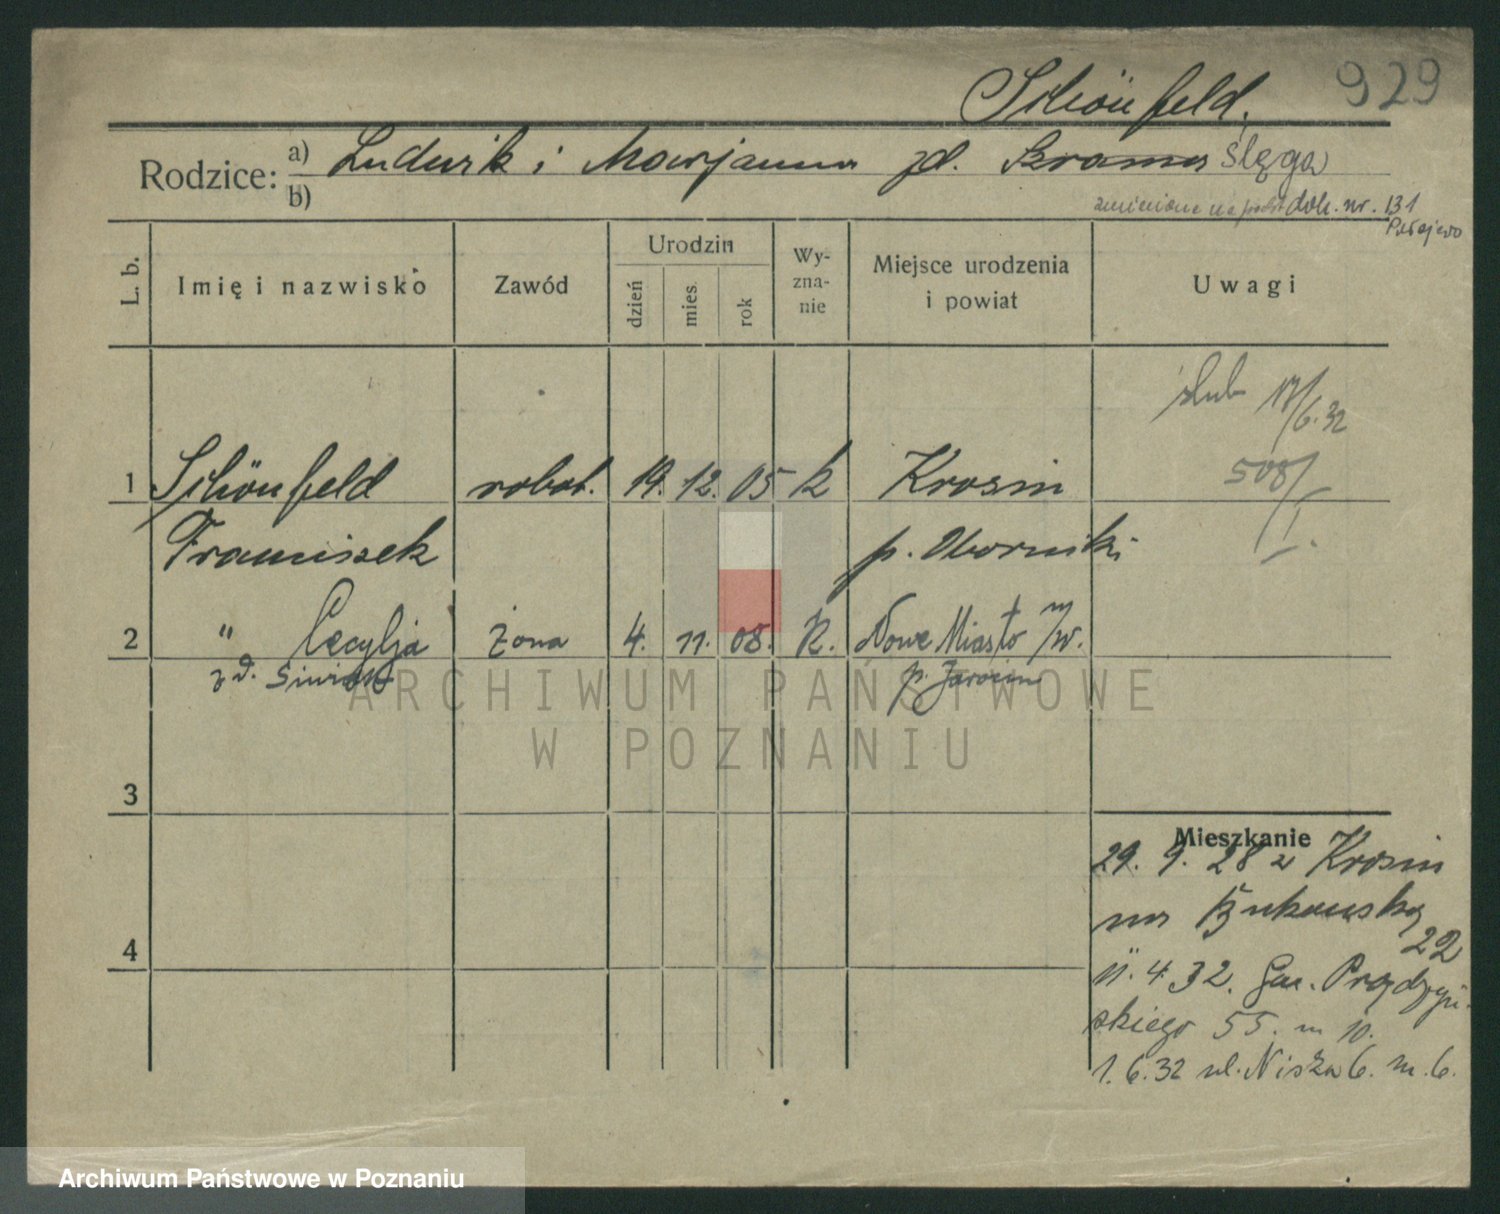 Schönfeld. 929
Rodzice: a) Ludwik i Marjanna zd. Szrama Ślęga
b)
zmienione na podst dok. nr. 131
Połajewo
L. b. Imię i nazwisko Zawód Urodzin Wyznanie Miejsce urodzenia i powiat Uwagi
dzień mies. rok
ślub 17/6.32
1 Schönfeld robot. 19. 12. 05 k Krosin
508/I.
Franciszek p. Oborniki
2 " Cecylja żona 4. 11. 08. k. Nowe Miasto n/W.
z d. p. Jarocin
3
Mieszkanie
29. 9. 28 z Krosin
na Bukowską
22
4
11. 4. 32. Gen. Prądzyń-
skiego 55. m 10.
1. 6. 32 ul. Niska 6. m. 6.
ARCHIWUM PAŃSTWOWE
W POZNANIU
Archiwum Państwowe w Poznaniu